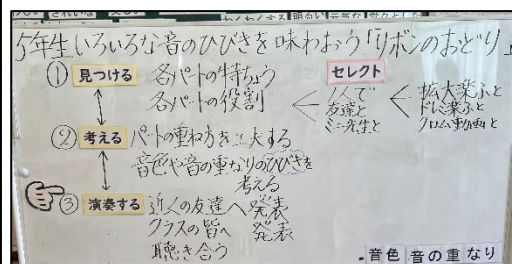 わくわくする 明るい 元気な
5年生 いろいろな音のひびきを味わおう「リボンのおどり」
① 見つける 各パートの特ちょう
各パートの役割
セレクト
1人で
友達と
ミニ先生と
拡大楽ふと
ドレミ楽ふと
クロム動画と
② 考える パートの重ね方を工夫する
音色や音の重なりのひびきを
考える
③ 演奏する 近くの友達へ発表
クラスの皆へ 発表
聴き合う
音色 音の重なり